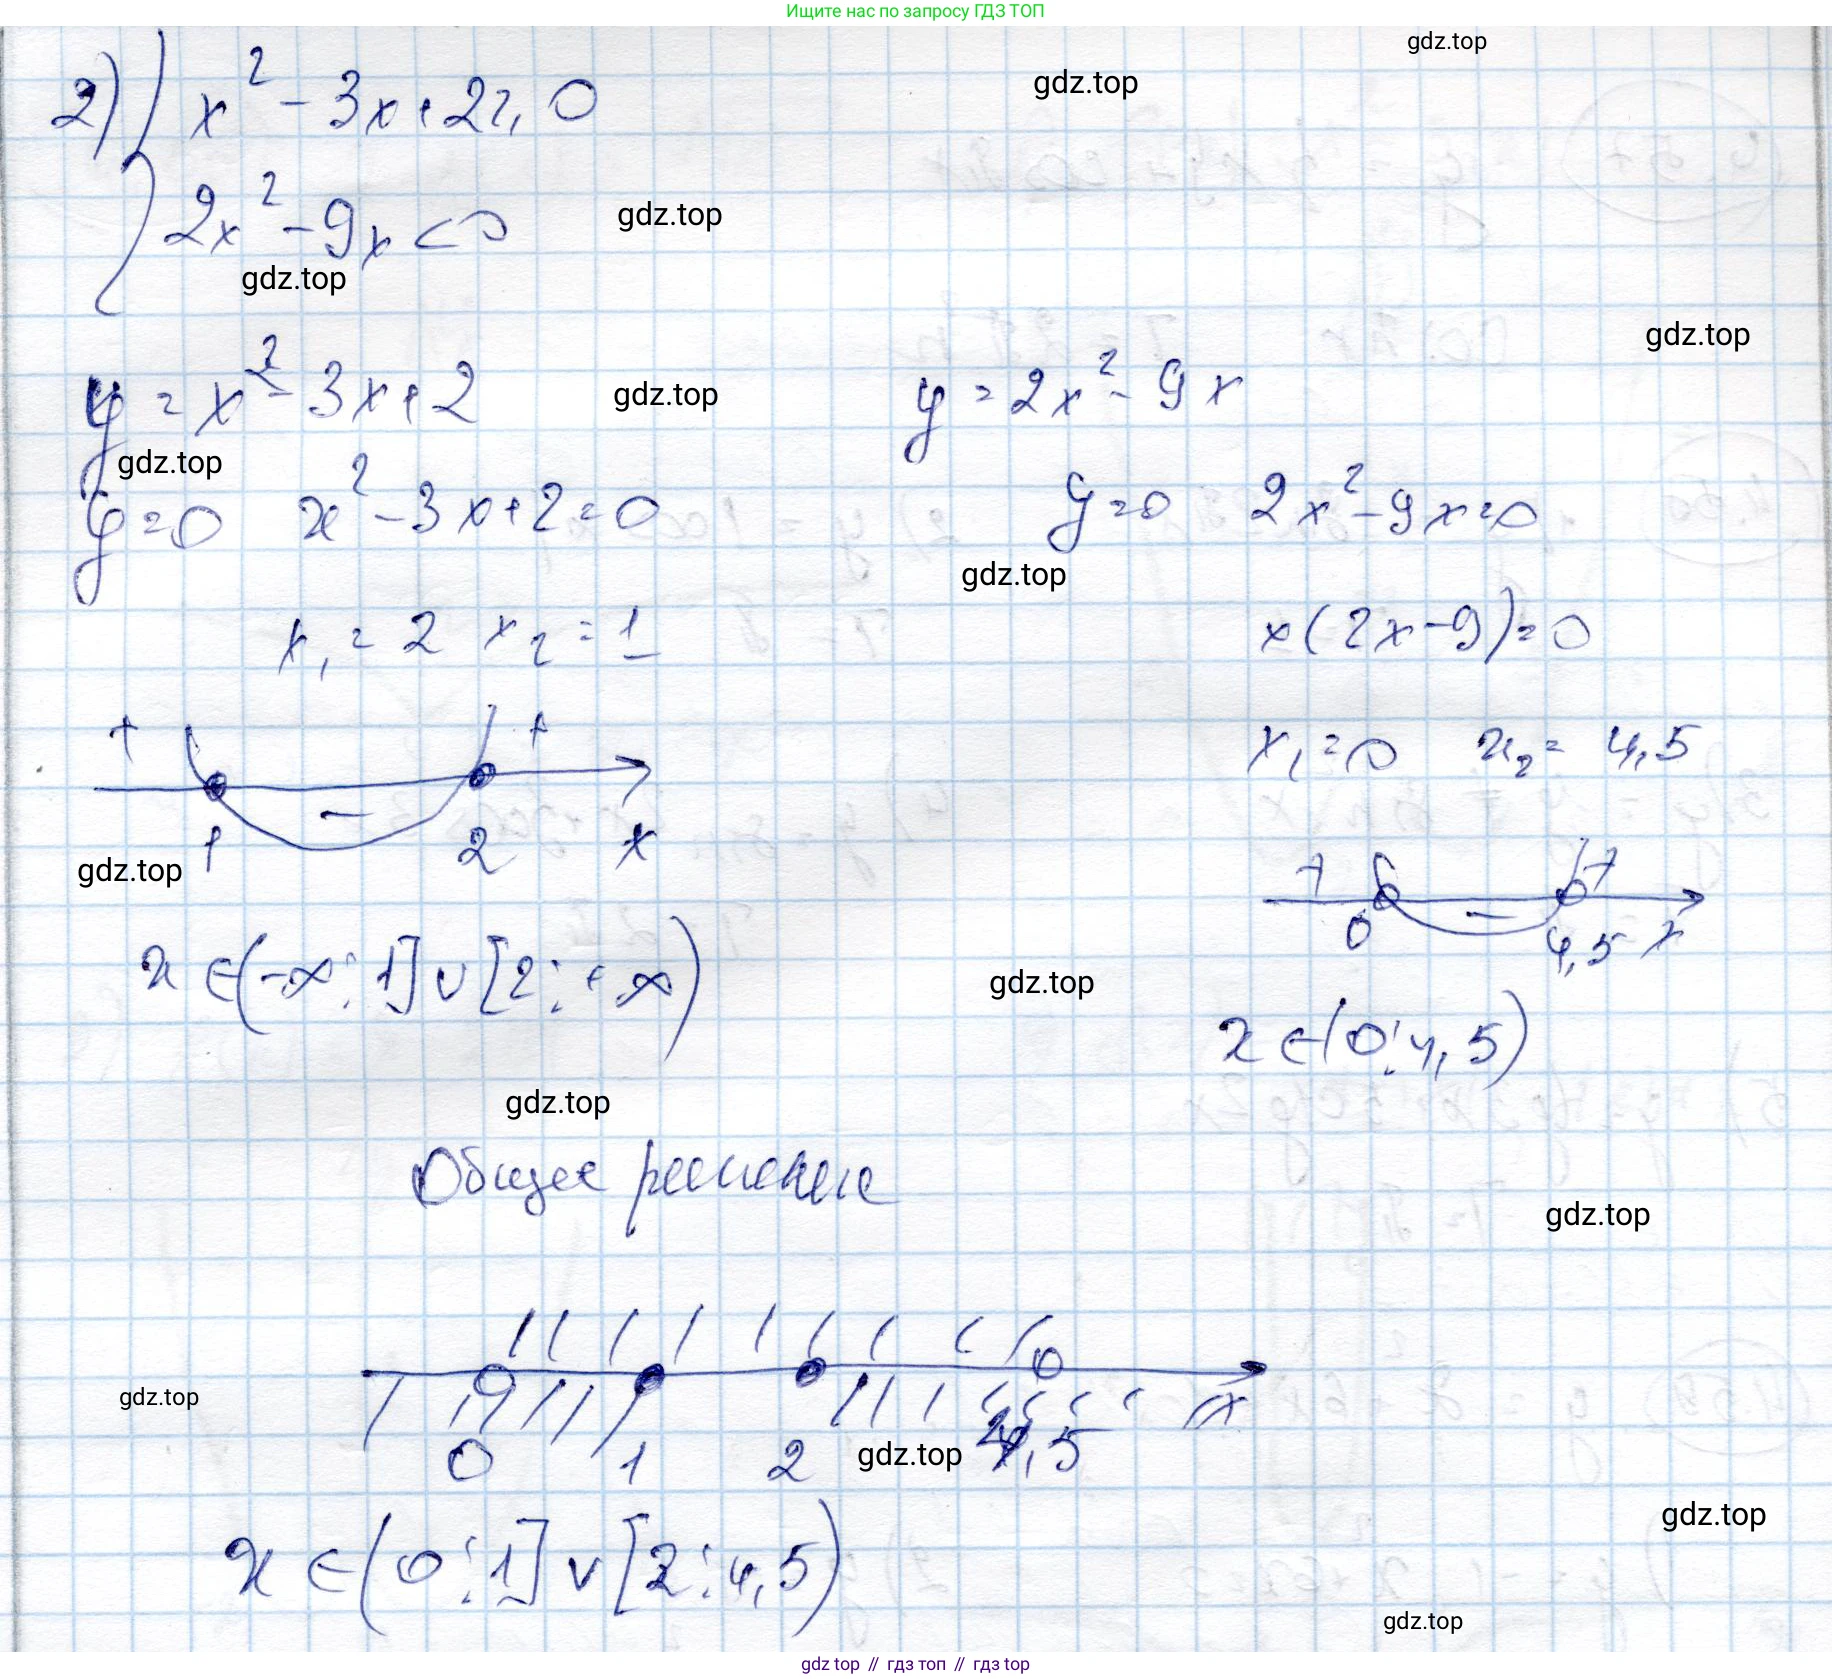 Ищите нас по запросу ГДЗ ТОП
gdz.top
2) { x² - 3x + 2 ≥ 0
gdz.top
2x² - 9x < 0
gdz.top
gdz.top
gdz.top
y = x² - 3x + 2
gdz.top
y = 2x² - 9x
gdz.top
y = 0 x² - 3x + 2 = 0
y = 0 2x² - 9x = 0
gdz.top
x₁ = 2 x₂ = 1
x(2x - 9) = 0
x₁ = 0 x₂ = 4,5
+ - +
1 2 x
gdz.top
+ - +
0 4,5 x
x ∈ (-∞; 1] ∪ [2; +∞)
gdz.top
x ∈ (0; 4,5)
gdz.top
Общее решение
gdz.top
gdz.top
0 1 2 4,5 x
gdz.top
gdz.top
x ∈ (0; 1] ∪ [2; 4,5)
gdz.top
gdz top // гдз топ // гдз top